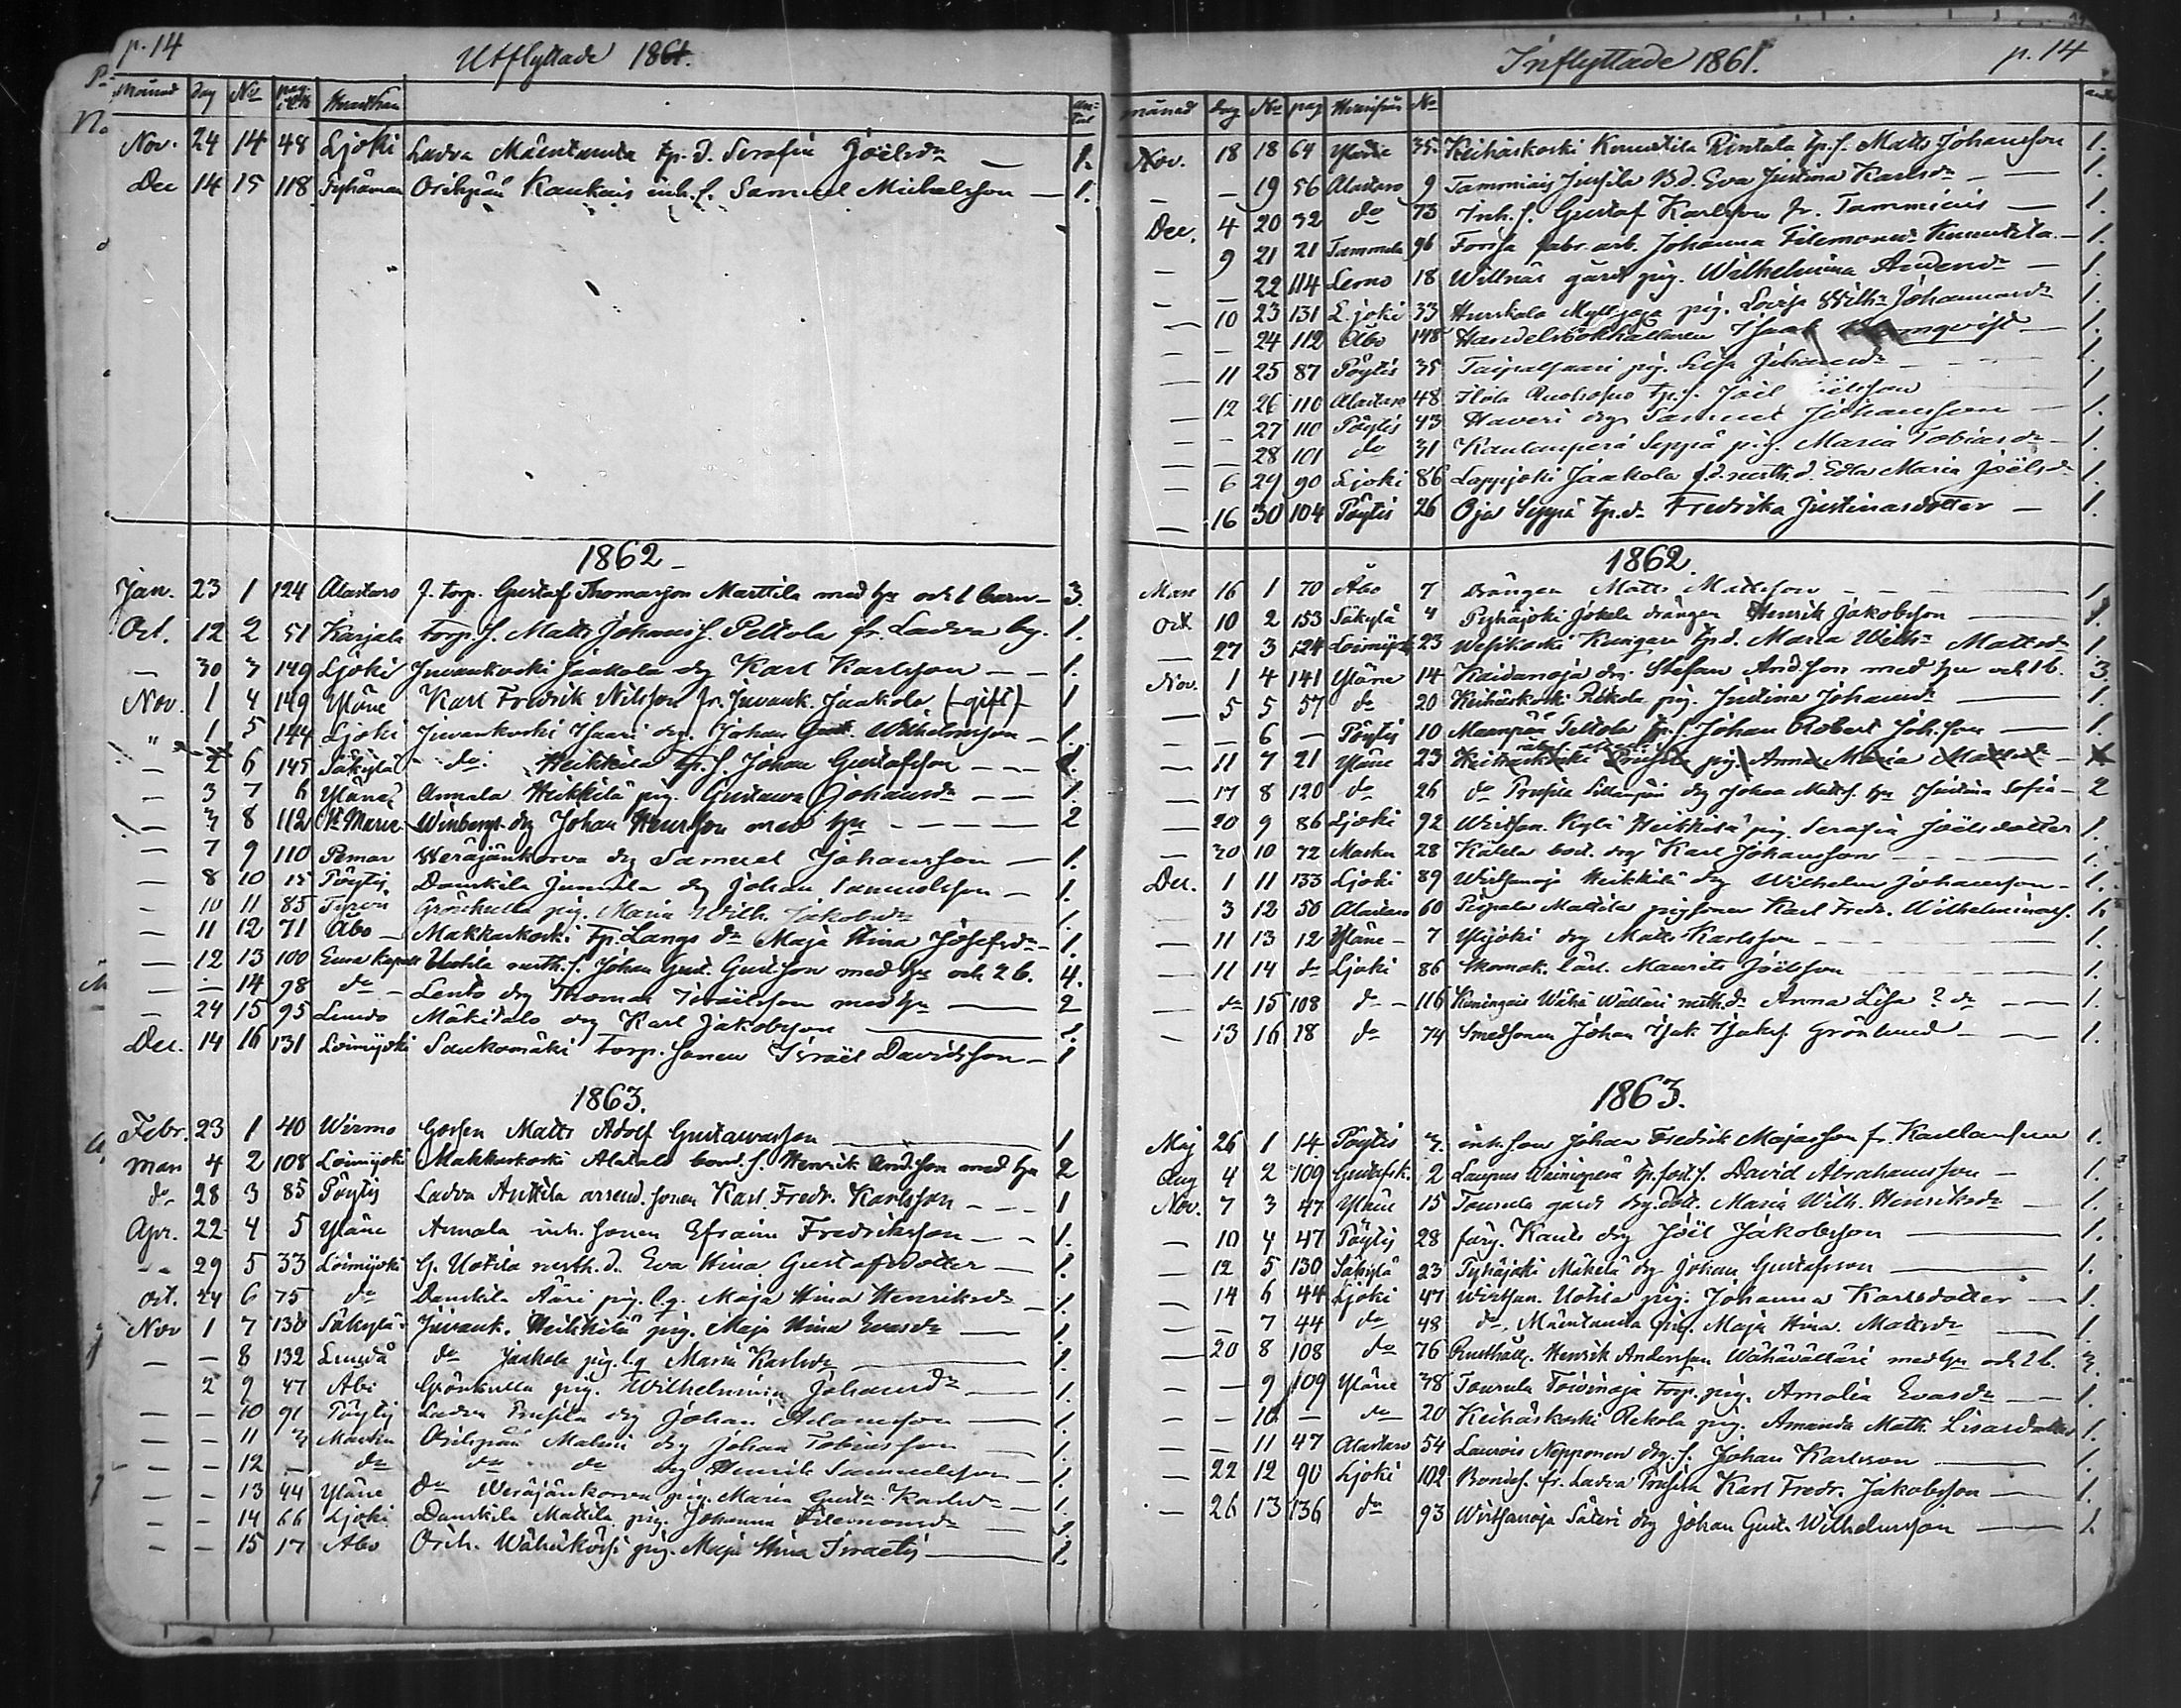 p. 14
Utflyttade 1861.
Månad Dag No pag. Hvarthän Antal
Nov. 24 14 48 Ljoki Ladva Mäentausta tp. d. Serafia Joëlsdr — 1.
Dec 14 15 118 Oripää Kankais inh. s. Samuel Michelsson — 1.
1862
Jan. 23 1 124 Alastaro f. torp. Gustaf Thomasson Marttila med hu och 1 barn — 3.
Oct. 12 2 51 Karjala torp. s. Matts Johanss. Peltola fr. Ladva by. 1.
— 30 3 149 Ljoki Juvankoski Jaakola dg Karl Karlsson — 1.
Nov. 1 4 149 Yläne Karl Fredrik Nilsson fr. Juvank. Jaakola (gift) 1
" 1 5 144 Ljoki Juvankoski Isaari dg. Johan Gust. Wilhelmsson — 1.
— 2 6 145 Säkylä do. Heikkilä tp. s. Johan Gustafsson — 1
— 3 7 6 Yläne Annala Heikkilä pig. Gustava Johansdr — 1.
— 3 8 112 St Marie Winberg dg Johan Henrsson med hu — 2
— 7 9 110 Pemar Weräjänkorva dg Samuel Johansson — 1.
— 8 10 15 Pöytis Danskila Junnila dg Johan Samuelsson — 1.
— 10 11 85 Grönkulla pig. Maria Wilh. Jakobsdr 1.
— 11 12 71 Åbo Makkarkoski tp. Längs dr Maja Stina Josefsdr — 1.
— 12 13 100 Eura Kapell Uotila rusth. s. Johan Gust. Gustsson med hu och 2 b. 4.
— — 14 98 do Lento dg Thomas Israëlsson med hu — 2
— 24 15 95 Lundo Mäkitalo dg Karl Jakobsson — 1.
Dec. 14 16 131 Loimijoki Saukomäki torp. sonen Israël Davidsson — 1
1863.
Febr. 23 1 40 Wirmo Gossen Matts Adolf Gustavasson — 1
Mars 4 2 108 Loimijoki Makkarkoski Alatalo bond. s. Henrik Andsson med hu 2
do 28 3 85 Pöytis Ladva Anttila arrend. sonen Karl Fredr. Karlsson — 1
Apr. 22 4 5 Yläne Annala inh. sonen Efraim Fredriksson — 1.
— 29 5 33 Loimijoki G. Uotila rusth. d. Eva Stina Gustafsdotter — 1.
Oct. 24 6 75 do Danskila Ääri pig. l.q. Maja Stina Henriksdr — 1.
Nov 1 7 130 Säkylä Juvank. Heikkilä pig. Maja Stina Evasdr — 1.
— — 8 132 Lundo do Jaakola pig. l.q Maria Karlsdr — 1.
2 9 47 Åbo Grönkulla pig. Wilhelmina Johansdr — 1.
— — 10 91 Pöytis Ladva Prusila dg Johan Adamsson — 1.
— — 11 3 Oripää Malmi dg Johan Tobiasson — 1.
— — 12 — do do do dg Henrik Samuelsson — 1.
— — 13 44 Yläne do Weräjänkorva pig. Maria Gusta Karlsdr — 1.
— — 14 66 Ljoki Danskila Mattila pig. Johanna Filemonsdr 1.
— — 15 17 Åbo Orih. Wähäkörsi pig. Maja Stina Israels — 1.
Inflyttade 1861.
p. 14
månad dag No pag Hvarifrån No
Nov. 18 18 64 Yläne 35 Keihäskoski Kunnstila Rintala tp. s. Matts Johansson 1.
— — 19 56 Alastaro 9 Tammiais Jussila B.d. Eva Justina Karlsdr — 1.
Dec. 4 20 32 do 73 Inh. s. Gustaf Karlsson fr. Tammiais — 1.
— 9 21 21 Tammela 96 Forssa fabr. arb. Johanna Filemonsdr — 1.
— — 22 114 Lemo 18 Willnäs gård pig. Wilhelmina — 1.
— 10 23 131 Ljoki 33 pig. Lovisa Wilh. Johannesdr 1.
— — 24 112 Åbo 148 Handelsbokhållaren Isaak — 1.
— 11 25 87 Pöytis 35 Taipalsaari pig. Lisa Johansdr 1.
— 12 26 110 Alastaro 48 tp. s. Joël 1.
— — 27 110 Pöytis 43 Haveri dg Samuel Johansson — 1.
— — 28 101 do 31 Kaulanperä Seppä pig. Maria Tobiasdr — 1.
— 6 29 90 Ljoki 86 Lappijoki Jaakola f.d. rusth. d. Edla Maria Joëlsdr 1.
— 16 30 104 Pöytis 26 Oja Seppä tp. d. Fredrika Justinasdotter — 1.
1862.
Mars 16 1 70 Åbo 7 Drängen Matts Mattsson — 1.
Oct. 10 2 153 Säkylä 4 Pyhäjoki Jokela drängen Henrik Jakobsson — 1.
— 27 3 124 Loimijoki 23 Wesikoski Kungan tp. d. Maria Wilh. Mattsdr 1.
Nov. 1 4 141 Yläne 14 Kaidanoja dg. Stefan Andsson med hu och 1 b. 3.
— 5 5 57 do 20 Keihäskoski Rekola pig. Justina Johansdr — 1.
— — 6 — Pöytis 10 Maanpää Peltola tp. s. Johan Robert Joh. son — 1.
— 11 7 21 Yläne 23 Keihäskoski Prusila pig. Anna Maria Mattsdr
— 17 8 120 do 26 do Prusila Sillanpää dg Johan Matts. hu Justina Sofia — 2
— 20 9 86 Ljoki 92 Heikkilä pig. Serafia Joëlsdotter 1.
— 30 10 72 Masku 28 bost. dg Karl Johansson — 1.
Dec. 1 11 133 Ljoki 89 Wirtsanoja Heikkilä dg Wilhelm Johansson — 1.
— 3 12 56 Alastaro 60 Mattila pigsonen Karl Fredr. Wilhelminas. 1.
— 11 13 12 Yläne 7 Ylijoki dg Matts Karlsson — 1.
— 11 14 do Ljoki 86 Skomak. lärl. Maurits Joëlsson — 1.
— do 15 108 do 116 Kuningais Wähä Wälläri rusth. dr Anna Lisa ? dr — 1.
— 13 16 18 do 74 Smedsonen Johan Isak Isaks. Grönlund — 1.
1863.
Maj 26 1 14 Pöytis 3 inh. son Johan Fredrik Majasson fr. 1.
Aug 4 2 109 Gustafsk. 2 Laupus Wäiniönperä David Abrahamsson — 1.
Nov. 7 3 47 Yläne 15 Tourula gård dg. dott. Maria Wilh. Henriksdr — 1.
— 10 4 47 Pöytis 28 Kants dg Joël Jakobsson — 1.
— 12 5 130 Säkylä 23 Pyhäjoki Mäkelä dg Johan Gustafsson — 1.
— 14 6 44 Ljoki 47 Wirtsan. Uotila pig. Johanna Karlsdotter — 1.
— — 7 44 do 48 do. Mäentausta pig. Maja Stina Mattsdr — 1.
— 20 8 108 do 76 Rusthåll. Henrik Andersson Wähävälläri med hu och 2 b. 3.
— — 9 109 Yläne 38 Tourula Toivinoja torp. pig. Amalia Evasdr — 1.
— — 10 — do 20 Keihäskoski Rekola pig. Amanda Math. Lisasdotter 1.
— — 11 47 Alastaro 54 Laurois Nepponen dg. s. Johan Karlsson — 1.
— 22 12 90 Ljoki 102 Bondes. fr. Ladva Prusila Karl Fredr. Jakobsson — 1.
— 26 13 136 do 93 Wirtsanoja Säteri dg Johan Gust. Wilhelmsson — 1.